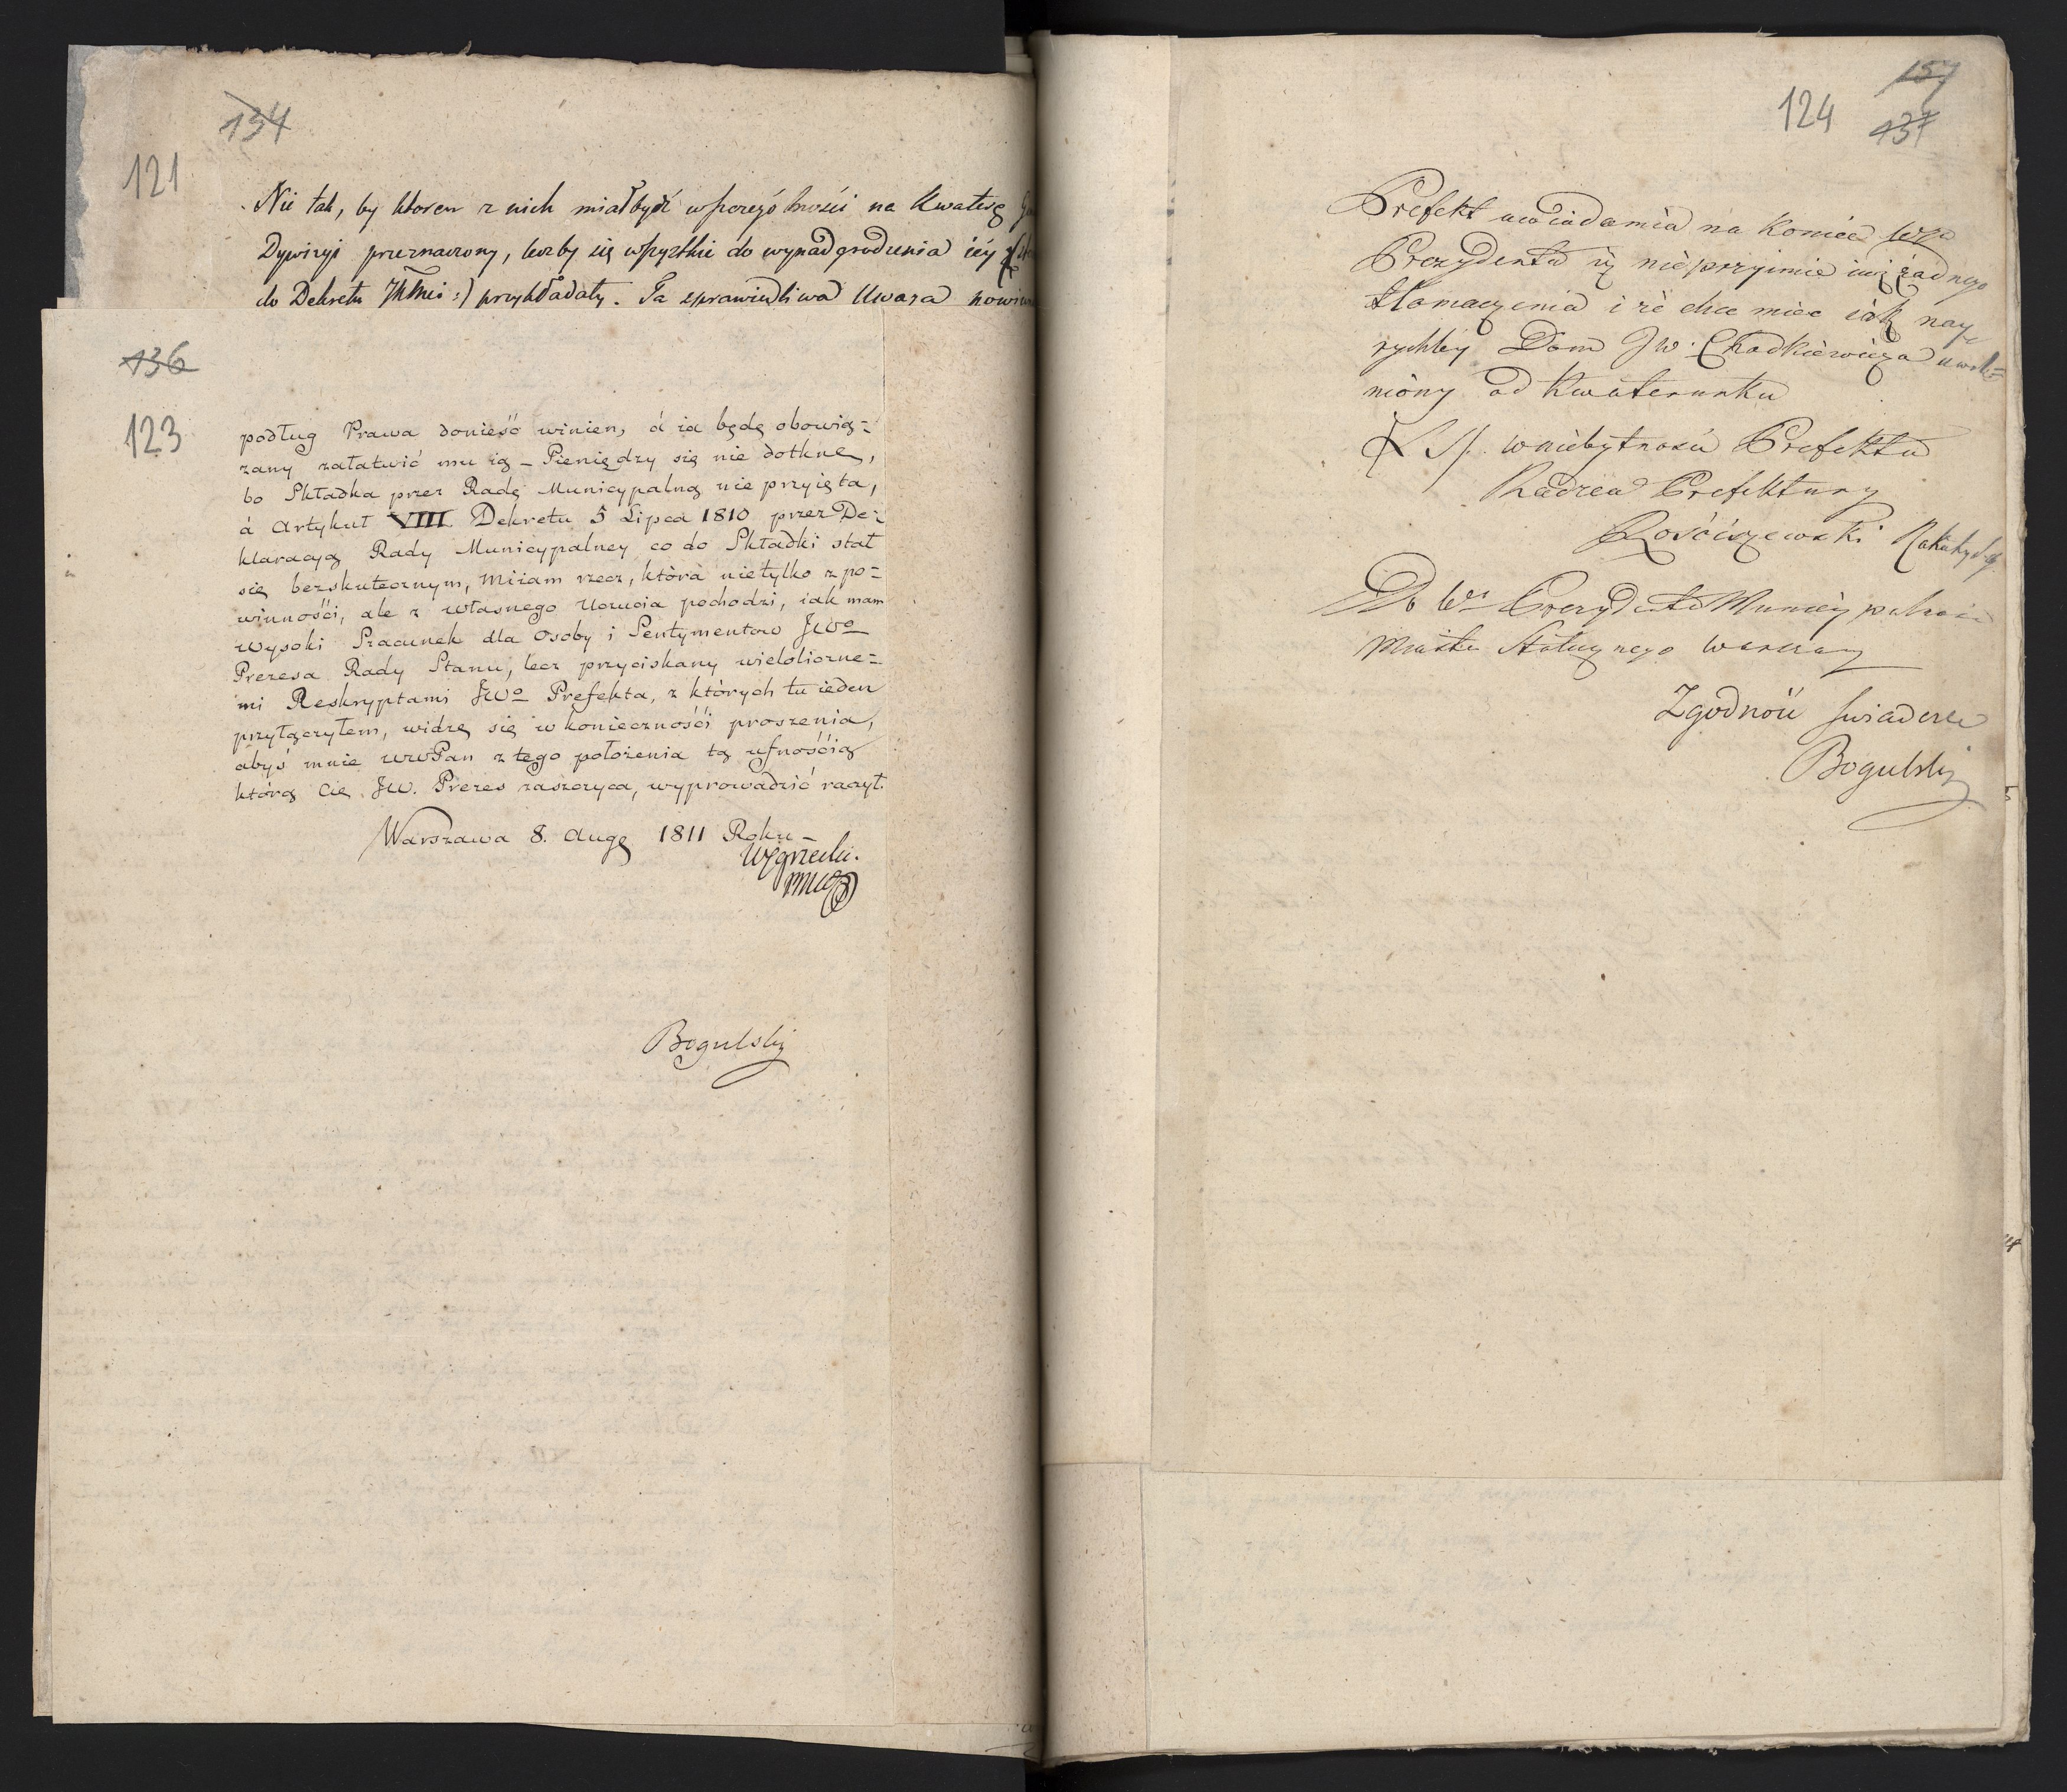 134
121
Nie tak, by ktoren z nich miał bydź wszczegołności na Kwaterę
Dywizyi przeznaczony, leczby się wszystkie do wynadgrodzenia iéy
do Dekretu JKMci :/ przykładały. Ta sprawiedliwa Uwaga
136
123
podług Prawa donieść winien, á ia będę obowią=
zany załatwić mu ią – Pieniędzy się nie dotknę,
bo Składka przez Radę Municypalną nie przyięta,
á Artykuł VIII. Dekretu 5 Lipca 1810 przez De=
klaracyą Rady Municypalney co do Składki stał
się bezskutecznym, Miiam rzecz, która nietylko z po=
winności, ale z własnego Uczucia pochodzi, iak mam
wysoki Szacunek dla Osoby i Sentymentow JWo
Prezesa Rady Stanu, lecz przyciskany wielolicznè=
mi Reskryptami JWo Prefekta, z których tu ieden
przyłączyłem, widzę się w konieczności proszenia,
abyś mnie WWPan z tego położenia tą ufnością
którą Cię JW. Prezes zaszczyca, wyprowadzić raczył.
Warszawa 8. Augę 1811 Roku –
Węgrzecki.
Bogulski
157
124
137
Prefekt uwiadamia na koniec WGo
Prezydenta iż nieprzyimie iuż żadnego
tłomaczenia i że chce miec iak nay
rychley Dom JW. Chodkiewicza uwol=
niony od Kwaterunku
LS/. w niebytności Prefekta
Radzca Prefektury
Rościszewski
Do Wo Prezydenta Municypalności
Miasta Stołecznego Warszawy
Zgodność świadczę
Bogulski